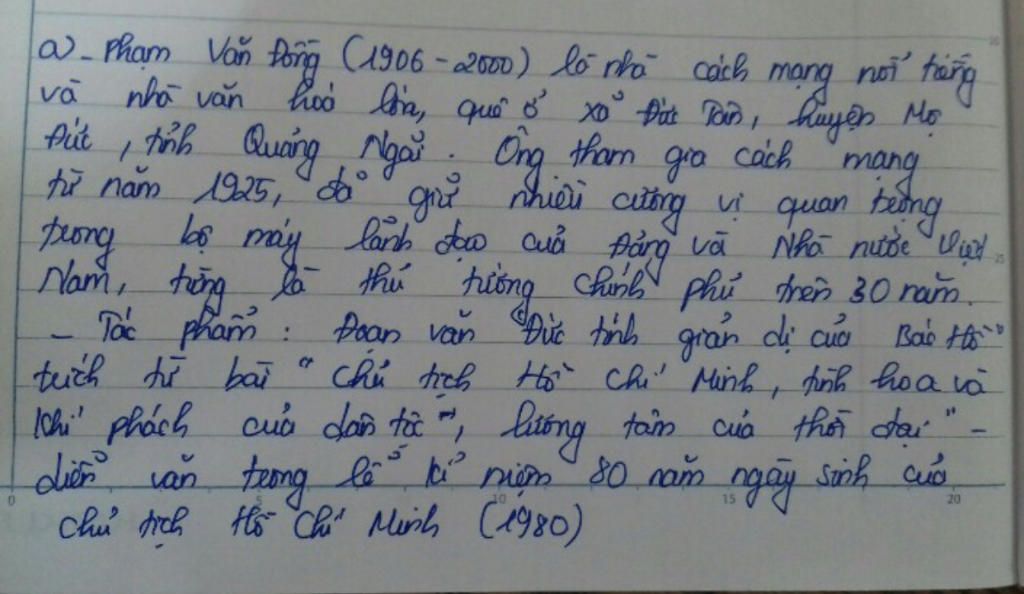 a) - Phạm Văn Đồng (1906 - 2000) là nhà cách mạng nổi tiếng
và nhà văn hoá lớn, quê ở xã Đức Tân, huyện Mộ
Đức, tỉnh Quảng Ngãi. Ông tham gia cách mạng
từ năm 1925, đã giữ nhiều cương vị quan trọng
trong bộ máy lãnh đạo của Đảng và Nhà nước Việt
Nam, từng là thủ tướng chính phủ trên 30 năm.
- Tác phẩm : Đoạn văn "Đức tính giản dị của Bác Hồ"
trích từ bài "Chủ tịch Hồ Chí Minh, tinh hoa và
khí phách của dân tộc", lương tâm của thời đại" -
diễn văn trong lễ kỉ niệm 80 năm ngày sinh của
chủ tịch Hồ Chí Minh (1980)
0 5 10 15 20
25